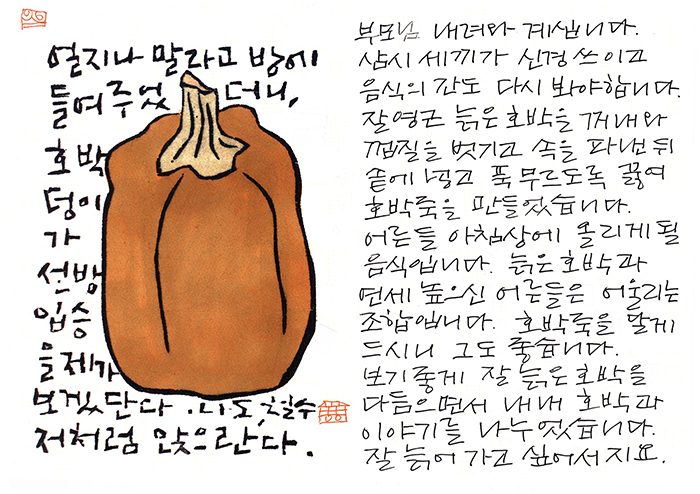 얼지나 말라고 방에
들여주었더니,
호박
덩이
가
선방
입승
을제가
보겠단다. 나도, 철수
저처럼 앉으란다.
부모님 내려와 계십니다.
삼시 세끼가 신경 쓰이고
음식의 간도 다시 봐야합니다.
잘 영근 늙은 호박을 꺼내와
껍질을 벗기고 속을 파낸 뒤
솥에 넣고 푹 무르도록 끓여
호박죽을 만들었습니다.
어른들 아침상에 올리게 될
음식입니다. 늙은 호박과
연세 높으신 어른들은 어울리는
조합입니다. 호박죽을 달게
드시니 그도 좋습니다.
보기좋게 잘 늙은 호박을
다듬으면서 내내 호박과
이야기를 나누었습니다.
잘 늙어 가고 싶어서지요.